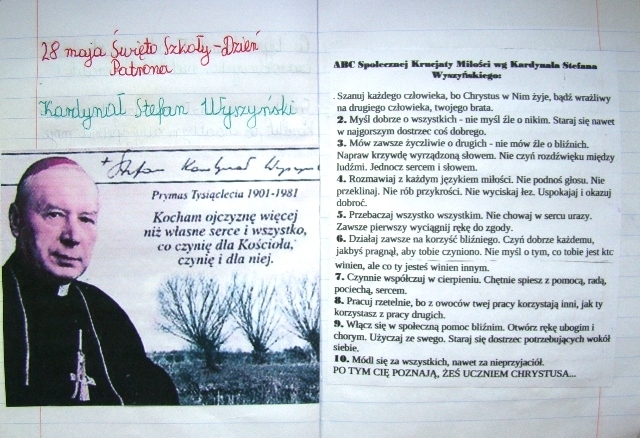 28 maja Święto Szkoły - Dzień
Patrona
Kardynał Stefan Wyszyński
+ Stefan Kardynał Wyszyń
Prymas Tysiąclecia 1901-1981
Kocham ojczyznę więcej
niż własne serce i wszystko,
co czynię dla Kościoła,
czynię i dla niej.
ABC Społecznej Krucjaty Miłości wg Kardynała Stefana
Wyszyńskiego:
. Szanuj każdego człowieka, bo Chrystus w Nim żyje, bądź wrażliwy
na drugiego człowieka, twojego brata.
2. Myśl dobrze o wszystkich - nie myśl źle o nikim. Staraj się nawet
w najgorszym dostrzec coś dobrego.
3. Mów zawsze życzliwie o drugich - nie mów źle o bliźnich.
Napraw krzywdę wyrządzoną słowem. Nie czyń rozdźwięku między
ludźmi. Jednocz sercem i słowem.
4. Rozmawiaj z każdym językiem miłości. Nie podnoś głosu. Nie
przeklinaj. Nie rób przykrości. Nie wyciskaj łez. Uspokajaj i okazuj
dobroć.
5. Przebaczaj wszystko wszystkim. Nie chowaj w sercu urazy.
Zawsze pierwszy wyciągnij rękę do zgody.
6. Działaj zawsze na korzyść bliźniego. Czyń dobrze każdemu,
jakbyś pragnął, aby tobie czyniono. Nie myśl o tym, co tobie jest ktc
winien, ale co ty jesteś winien innym.
7. Czynnie współczuj w cierpieniu. Chętnie spiesz z pomocą, radą,
pociechą, sercem.
8. Pracuj rzetelnie, bo z owoców twej pracy korzystają inni, jak ty
korzystasz z pracy drugich.
9. Włącz się w społeczną pomoc bliźnim. Otwórz rękę ubogim i
chorym. Użyczaj ze swego. Staraj się dostrzec potrzebujących wokół
siebie.
10. Módl się za wszystkich, nawet za nieprzyjaciół.
PO TYM CIĘ POZNAJĄ, ŻEŚ UCZNIEM CHRYSTUSA...